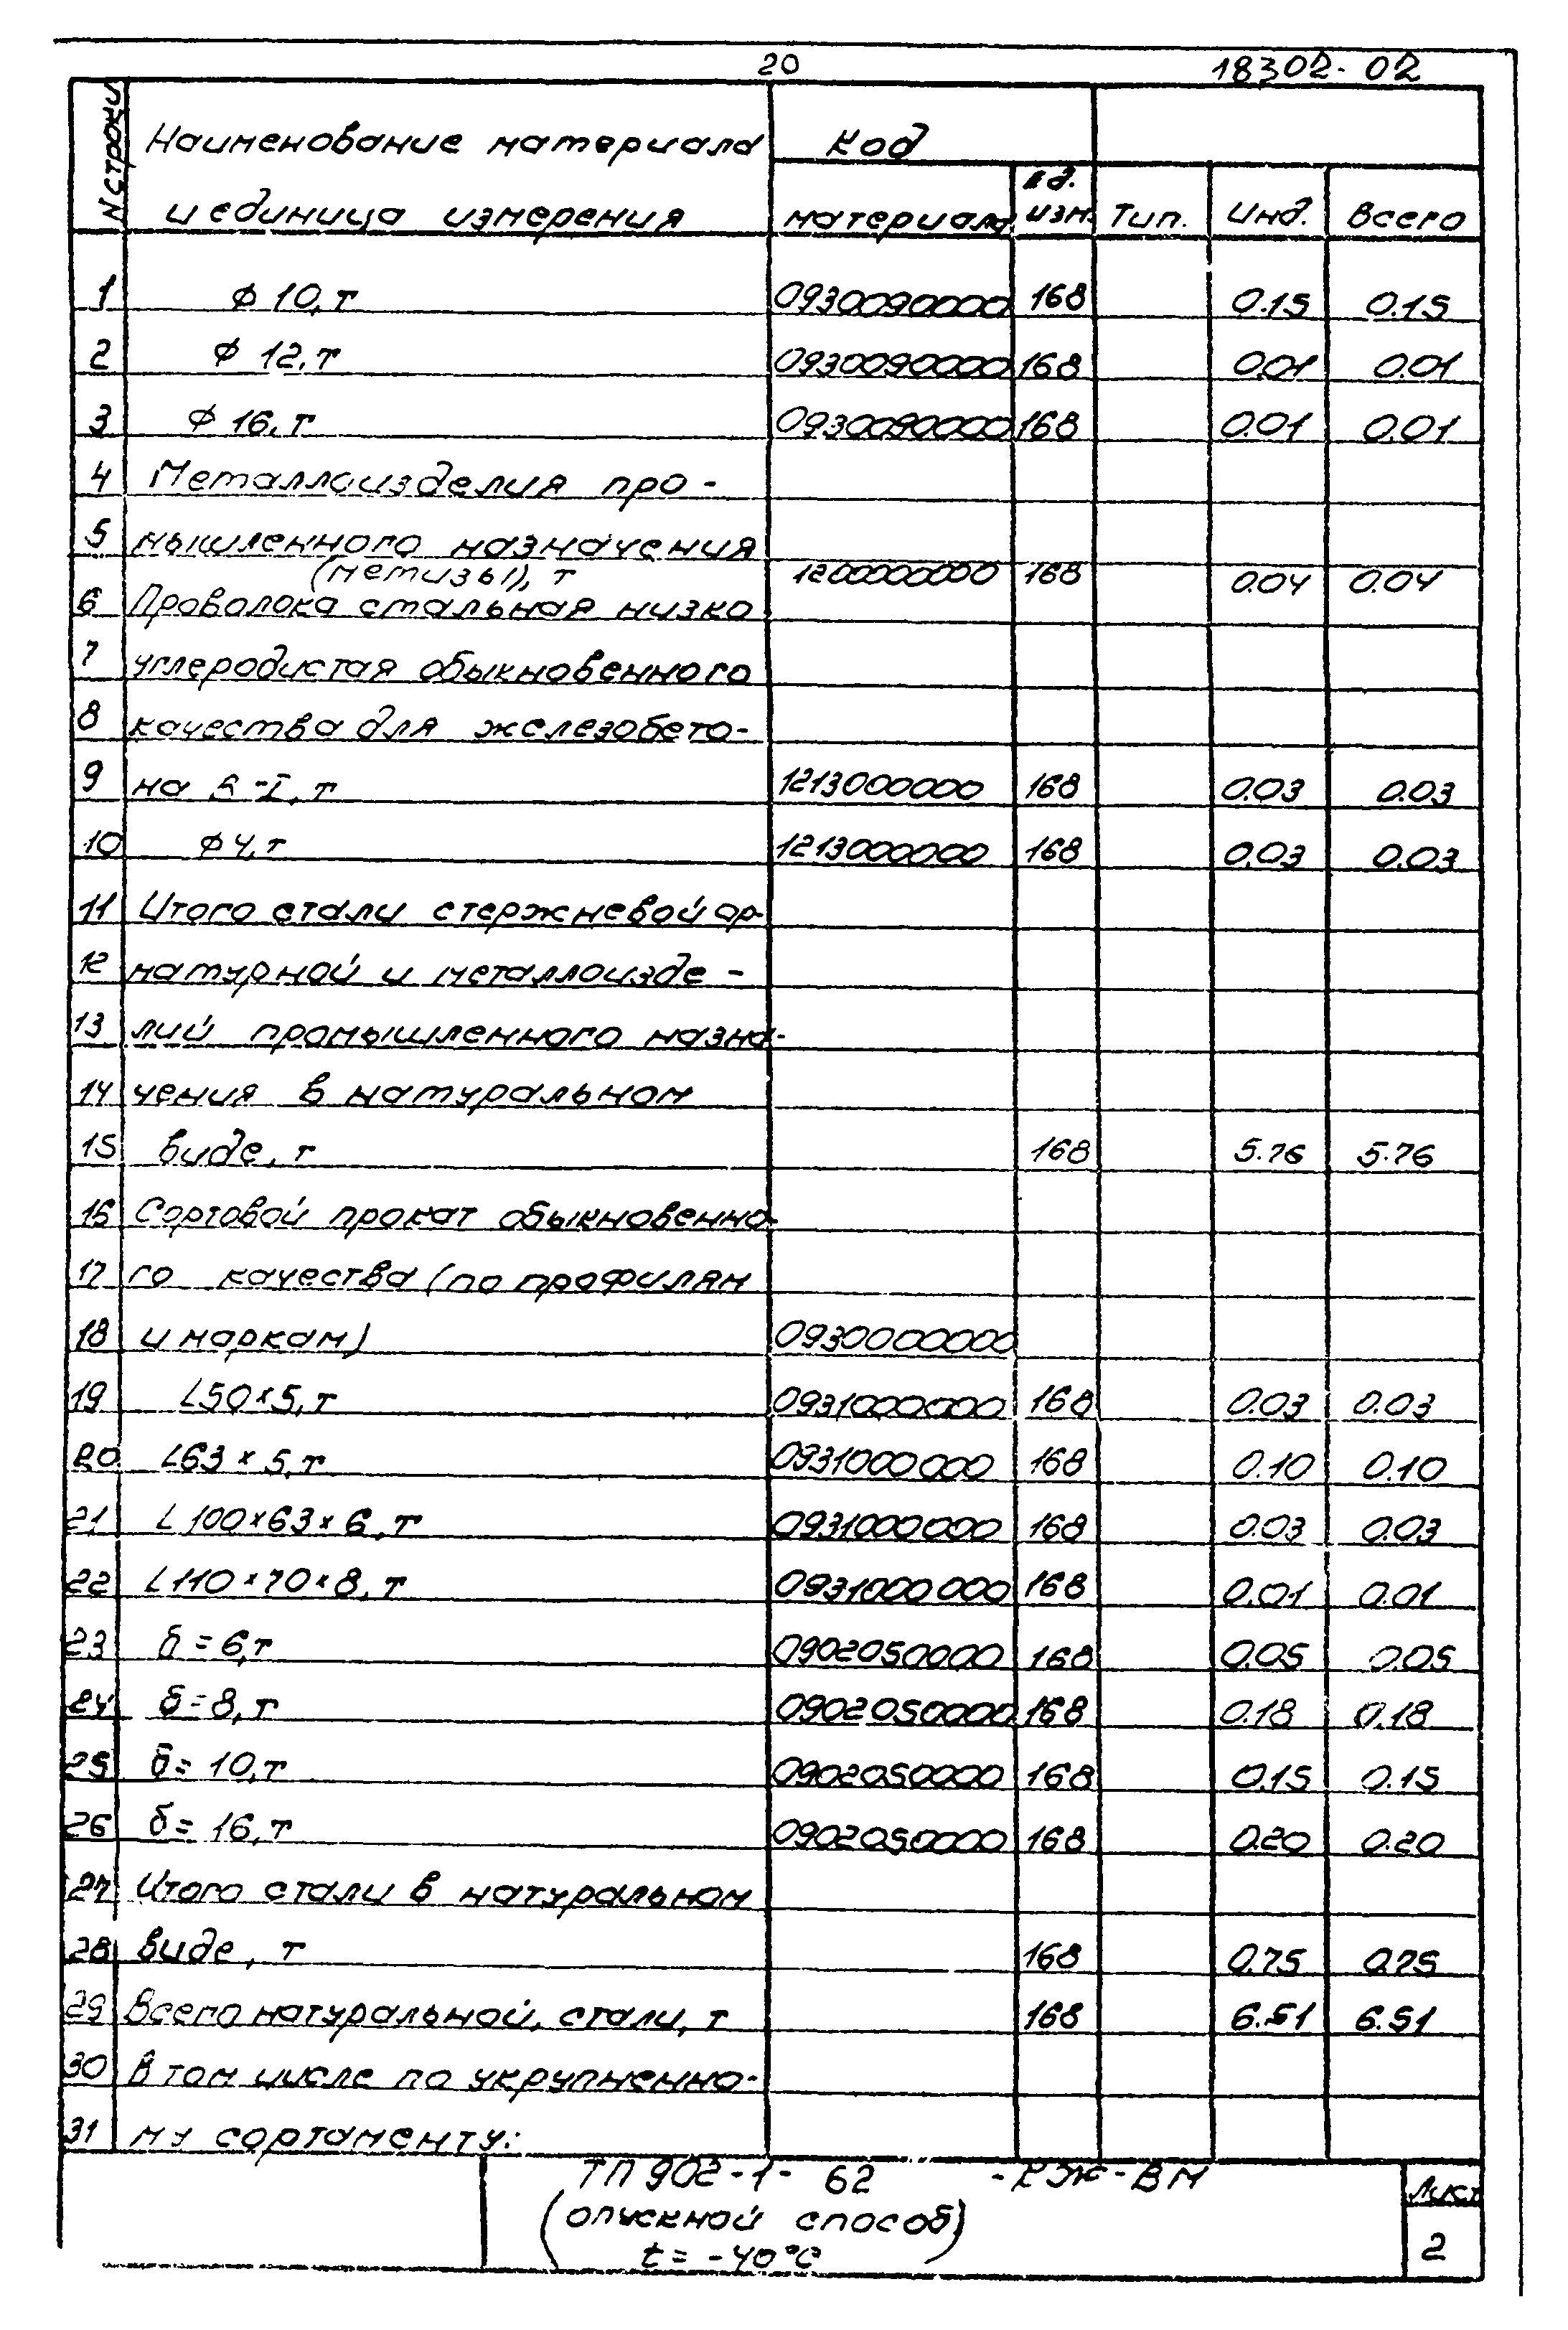 20 18302-02
N строки Наименование материала Код
и единица измерения материала ед. изм. Тип. Инд. Всего
1 ϕ 10, т 0930090000 168 0.15 0.15
2 ϕ 12, т 0930090000 168 0.01 0.01
3 ϕ 16, т 0930090000 168 0.01 0.01
4 Металлоизделия про-
5 мышленного назначения
(метизы), т 1200000000 168 0.04 0.04
6 Проволока стальная низко
7 углеродистая обыкновенного
8 качества для железобето-
9 на В-I, т 1213000000 168 0.03 0.03
10 ϕ 4, т 1213000000 168 0.03 0.03
11 Итого стали стержневой ар-
12 матурной и металлоизде-
13 лий промышленного назна-
14 чения в натуральном
15 виде, т 168 5.76 5.76
16 Сортовой прокат обыкновенно-
17 го качества (по профилям
18 и маркам) 0930000000
19 L50×5, т 0931000000 168 0.03 0.03
20 L63×5, т 0931000000 168 0.10 0.10
21 L100×63×6, т 0931000000 168 0.03 0.03
22 L110×70×8, т 0931000000 168 0.01 0.01
23 δ=6, т 0902050000 168 0.05 0.05
24 δ=8, т 0902050000 168 0.18 0.18
25 δ=10, т 0902050000 168 0.15 0.15
26 δ=16, т 0902050000 168 0.20 0.20
27 Итого стали в натуральном
28 виде, т 168 0.75 0.75
29 Всего натуральной, стали, т 168 6.51 6.51
30 В том числе по укрупненно-
31 му сортаменту:
ТП 902-1-62 -КЖ-ВМ Лист
(опускной способ) 2
t= -40°С